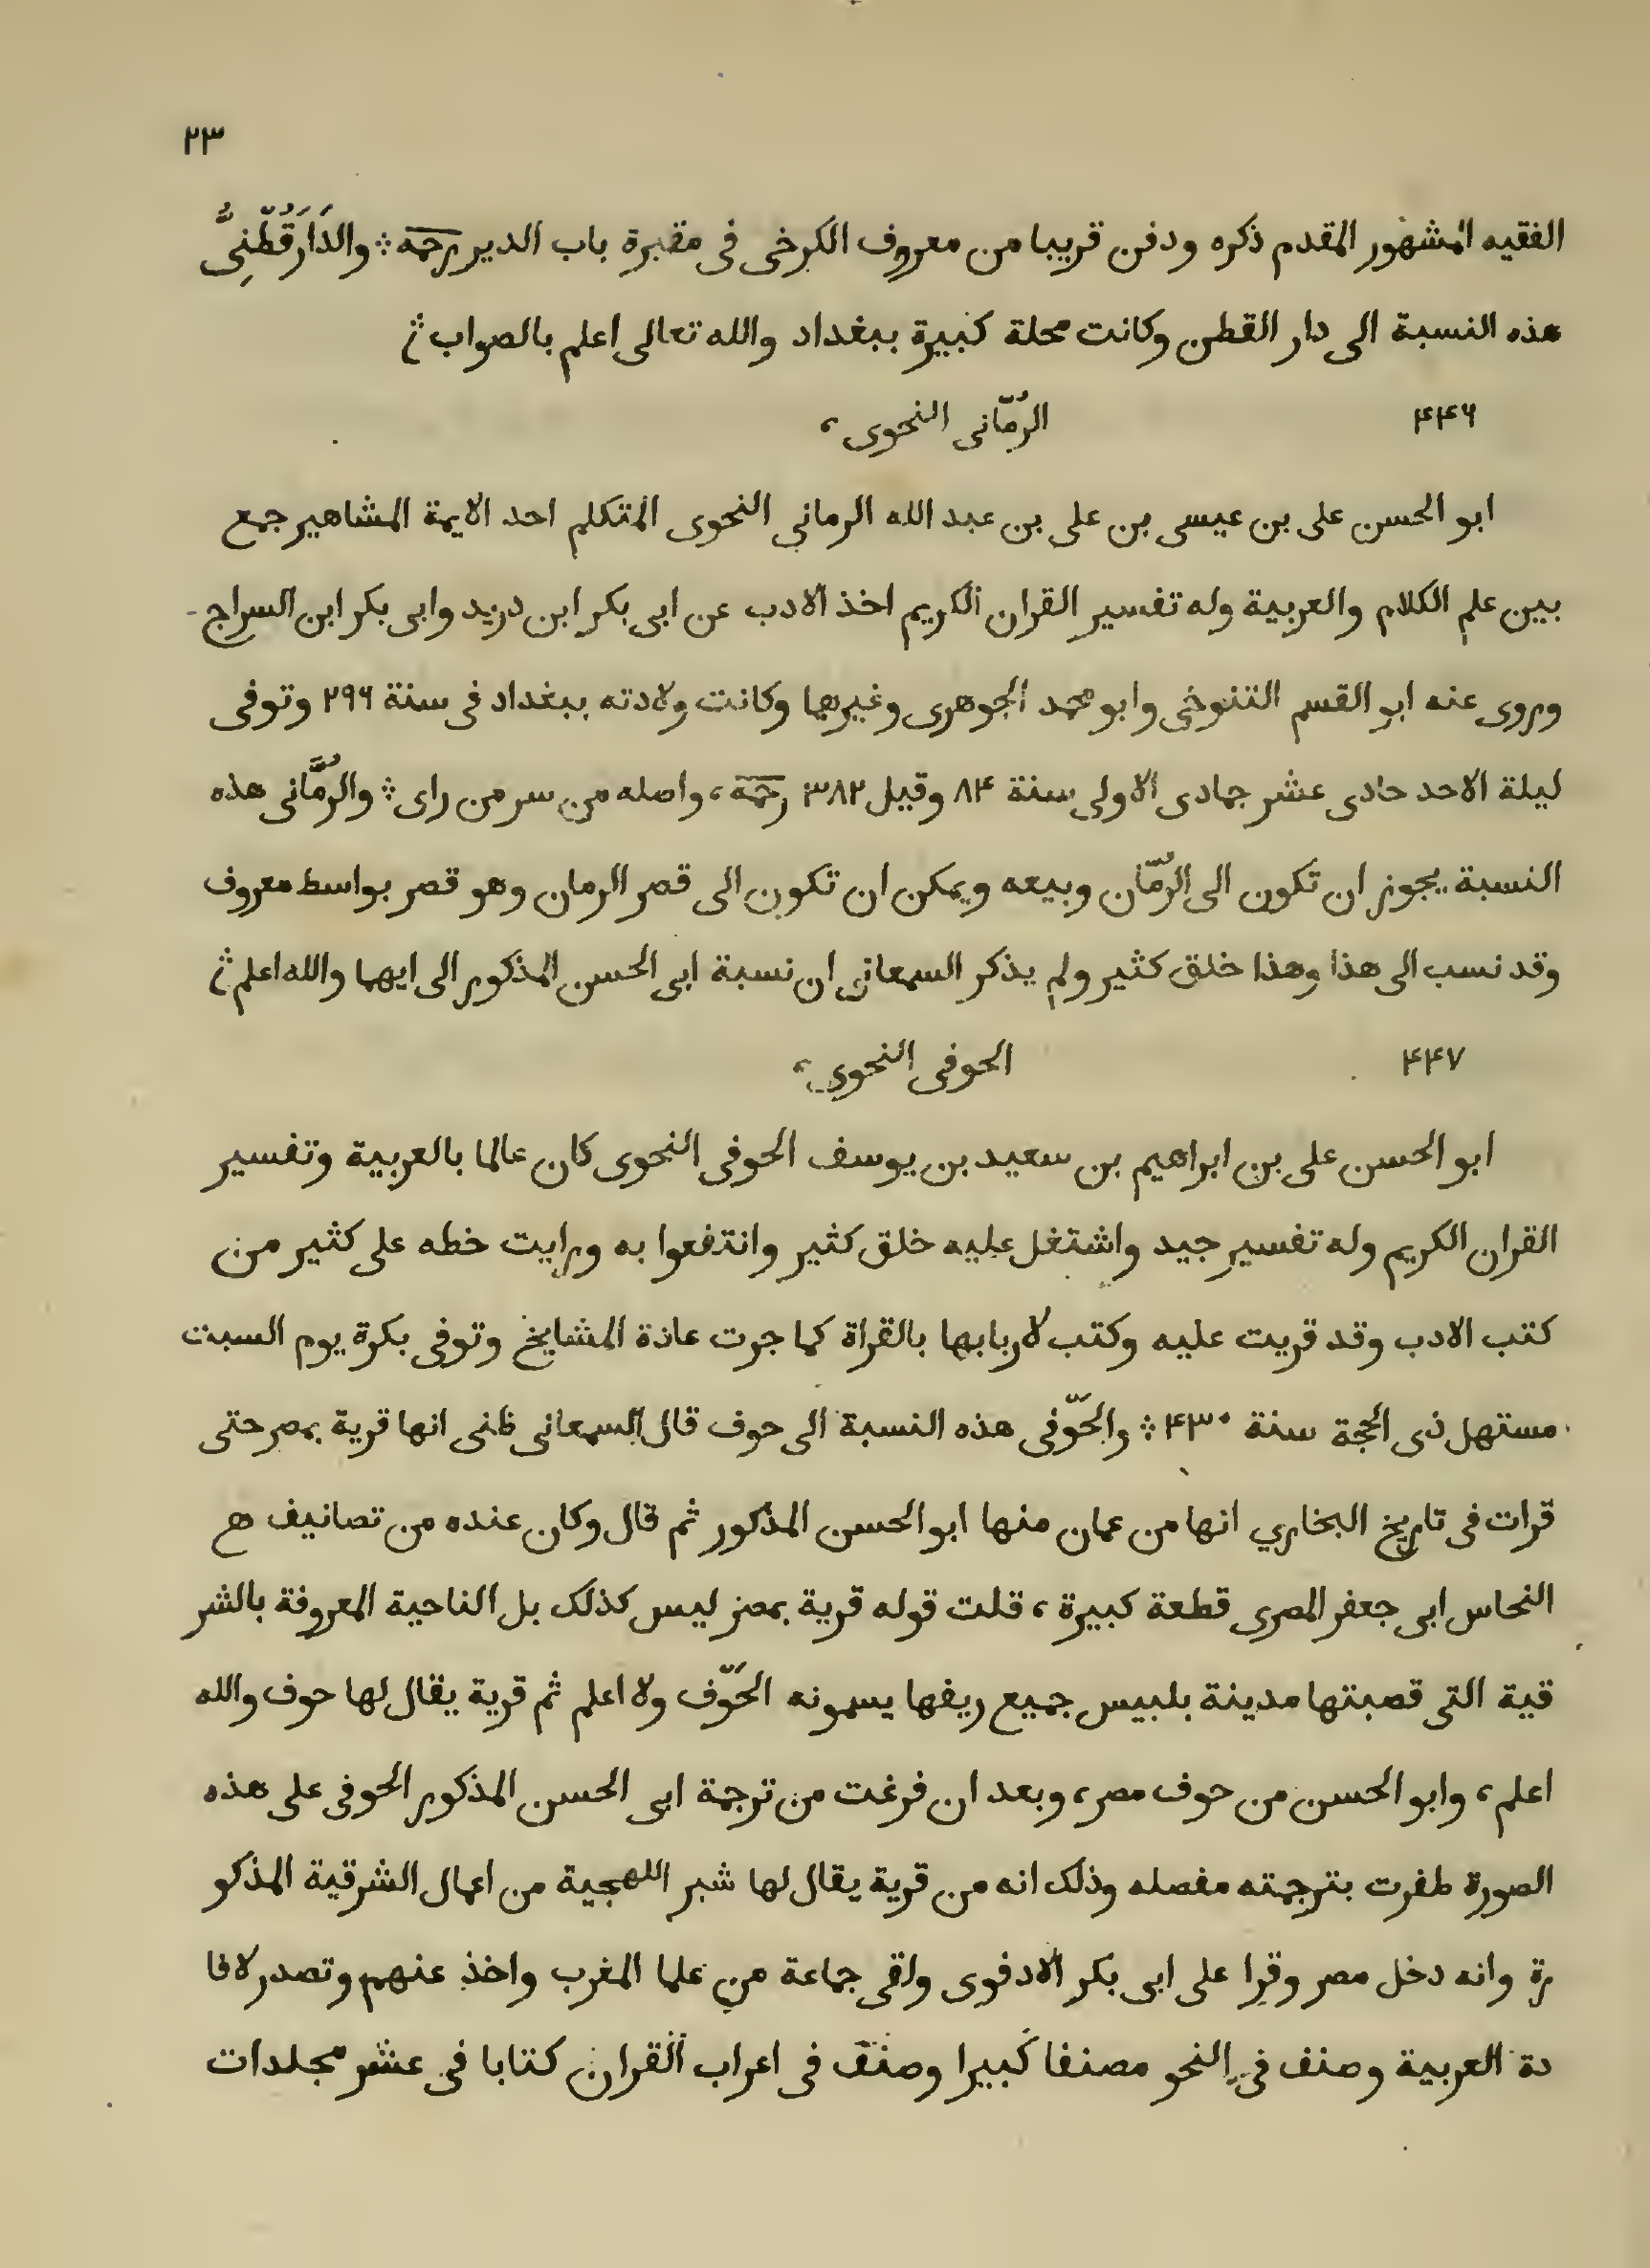 ٢٣
الفقيه المشهور المقدم ذكره ودفن قريبا من معروف الكرخى فى مقبرة باب الدير رحمه ؞ والدَارَقُطْنِىُّ
هذه النسبة الى دار القطن وكانت محلة كبيرة ببغداد والله تعالى اعلم بالصواب ؞
٤٤٦ الرُمّانى النحوى،
ابو الحسن على بن عيسى بن على بن عبد الله الرمانى النحوى المتكلم احد الايمة المشاهير جمع
بين علم الكلام والعربية وله تفسير القران الكريم اخذ الادب عن ابى بكر ابن دريد وابى بكر ابن السراج -
وروى عنه ابو القسم التنوخى وابو محمد الجوهرى وغيرهما وكانت ولادته ببغداد فى سنة ٢٩٦ وتوفى
ليلة الاحد حادى عشر جمادى الاولى سنة ٨٤ وقيل ٣٨٢ رحمه، واصله من سر من راى ؞ والرُمَّانى هذه
النسبة يجوز ان تكون الى الرُمّان وبيعه ويمكن ان تكون الى قصر الرمان وهو قصر بواسط معروف
وقد نسب الى هذا وهذا خلق كثير ولم يذكر السمعانى ان نسبة ابى الحسن المذكور الى ايهما والله اعلم ؞
٤٤٧ الحوفى النحوى،
ابو الحسن على بن ابراهيم بن سعيد بن يوسف الحوفى النحوى كان عالما بالعربية وتفسير
القران الكريم وله تفسير جيد واشتغل عليه خلق كثير وانتفعوا به ورايت خطه على كثير من
كتب الادب وقد قريت عليه وكتب لاربابها بالقراة كما جرت عادة المشايخ وتوفى بكرة يوم السبت
مستهل ذى الحجة سنة ٤٣٠ ؞ والحَوْفى هذه النسبة الى حوف قال السمعانى ظنى انها قرية بمصر حتى
قرات فى تاريخ البخاري انها من عمان منها ابو الحسن المذكور ثم قال وكان عنده من تصانيف هح
النحاس ابى جعفر المصرى قطعة كبيرة، قلت قوله قرية بمصر ليس كذلك بل الناحية المعروفة بالشر
قية التى قصبتها مدينة بلبيس جميع ريفها يسمونه الحَوْف ولا اعلم ثم قرية يقال لها حوف والله
اعلم، وابو الحسن من حوف مصر، وبعد ان فرغت من ترجمة ابى الحسن المذكور الحوفى على هذه
الصورة ظفرت بترجمته مفصله وذلك انه من قرية يقال لها شبر اللهجية من اعمال الشرقية المذكو
رة وانه دخل مصر وقرا على ابى بكر الادفوى ولقى جماعة من علما المغرب واخذ عنهم وتصدر لافا
دة العربية وصنف فى النحو مصنفا كبيرا وصنف فى اعراب القران كتابا فى عشر مجلدات